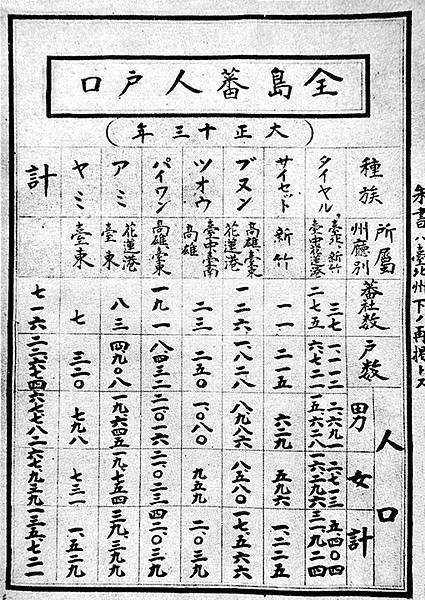 全島蕃人戸口
(大正十三年)
種族 所屬州廳別 蕃社數 戸數 人口 男 女 計
タイヤル 臺北、新竹 臺中花蓮港 三七 二七五 一、一一二 六七二一 二、六九一 一五、六二八 二、七一三 一六、二九六 五四〇四 三一、九二四
サイセット 新竹 一一 二一五 六二九 五九六 一、二二五
ブヌン 高雄、臺東 花蓮港 一二六 一、八二八 八、九八六 八、五八〇 一七、五六六
ツオウ 臺中臺南 高雄 二三 二五〇 一、〇八〇 九五九 二、〇三九
パイワン 高雄、臺東 一九一 八四三二 二一、〇一六 二一、〇二三 四二、〇三九
アミ 花蓮港 臺東 八三 四九〇八 一九、六四五 一九、七五四 三九、三九九
ヤミ 臺東 七 三二〇 七九八 七三一 一、五二九
計 七一六 二二、六七四 六七、七八二 六七、九三九 一三五、七二一
朱書ハ臺北州下ノ再掲トス